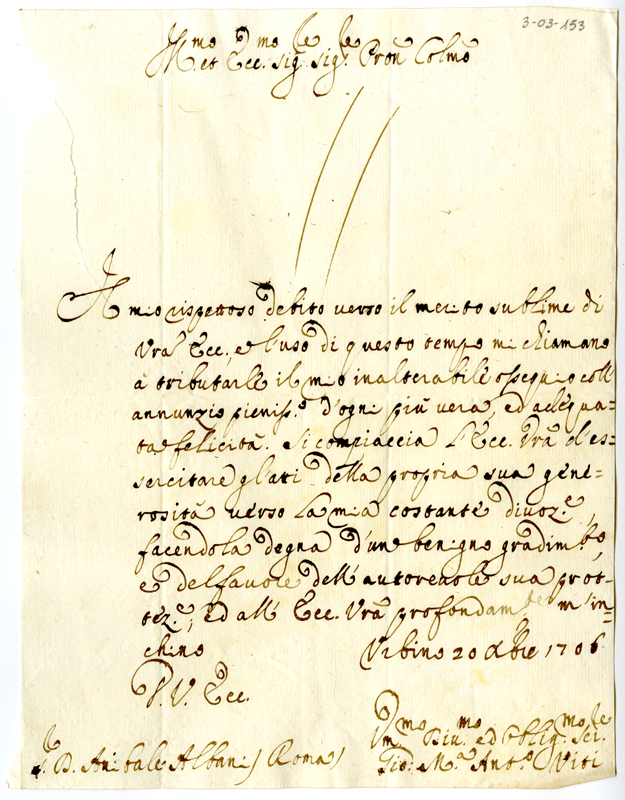 3-03-153
Ill.mo et Ecc.mo Sig.le Sig.le Pron Colmo
Il mio rispettoso debito verso il merito sublime di
Vrā Ecc., e l'uso di questo tempo mi chiamano
à tributarle il mio inalterabile ossequio coll
annunzio pieniss.o d'ogni più vera, ed adequa=
ta felicità. Si compiaccia l'Ecc. Vrā d'es=
sercitare gl'atti della propria sua gene=
rosità verso la mia costante divoz.e,
facendola degna d'un benigno gradim.to,
e del favore dell'autorevole sua prot=
tez.e; ed all'Ecc. Vrā profondam.te m'in=
chino Vrbino 20 Xbre 1706
D. V. Ecc.
D. Anibale Albani / Roma /
Vm.mo Diu.mo ed Obblig.mo Ser.le
Gio: M.a Ant.o Viti